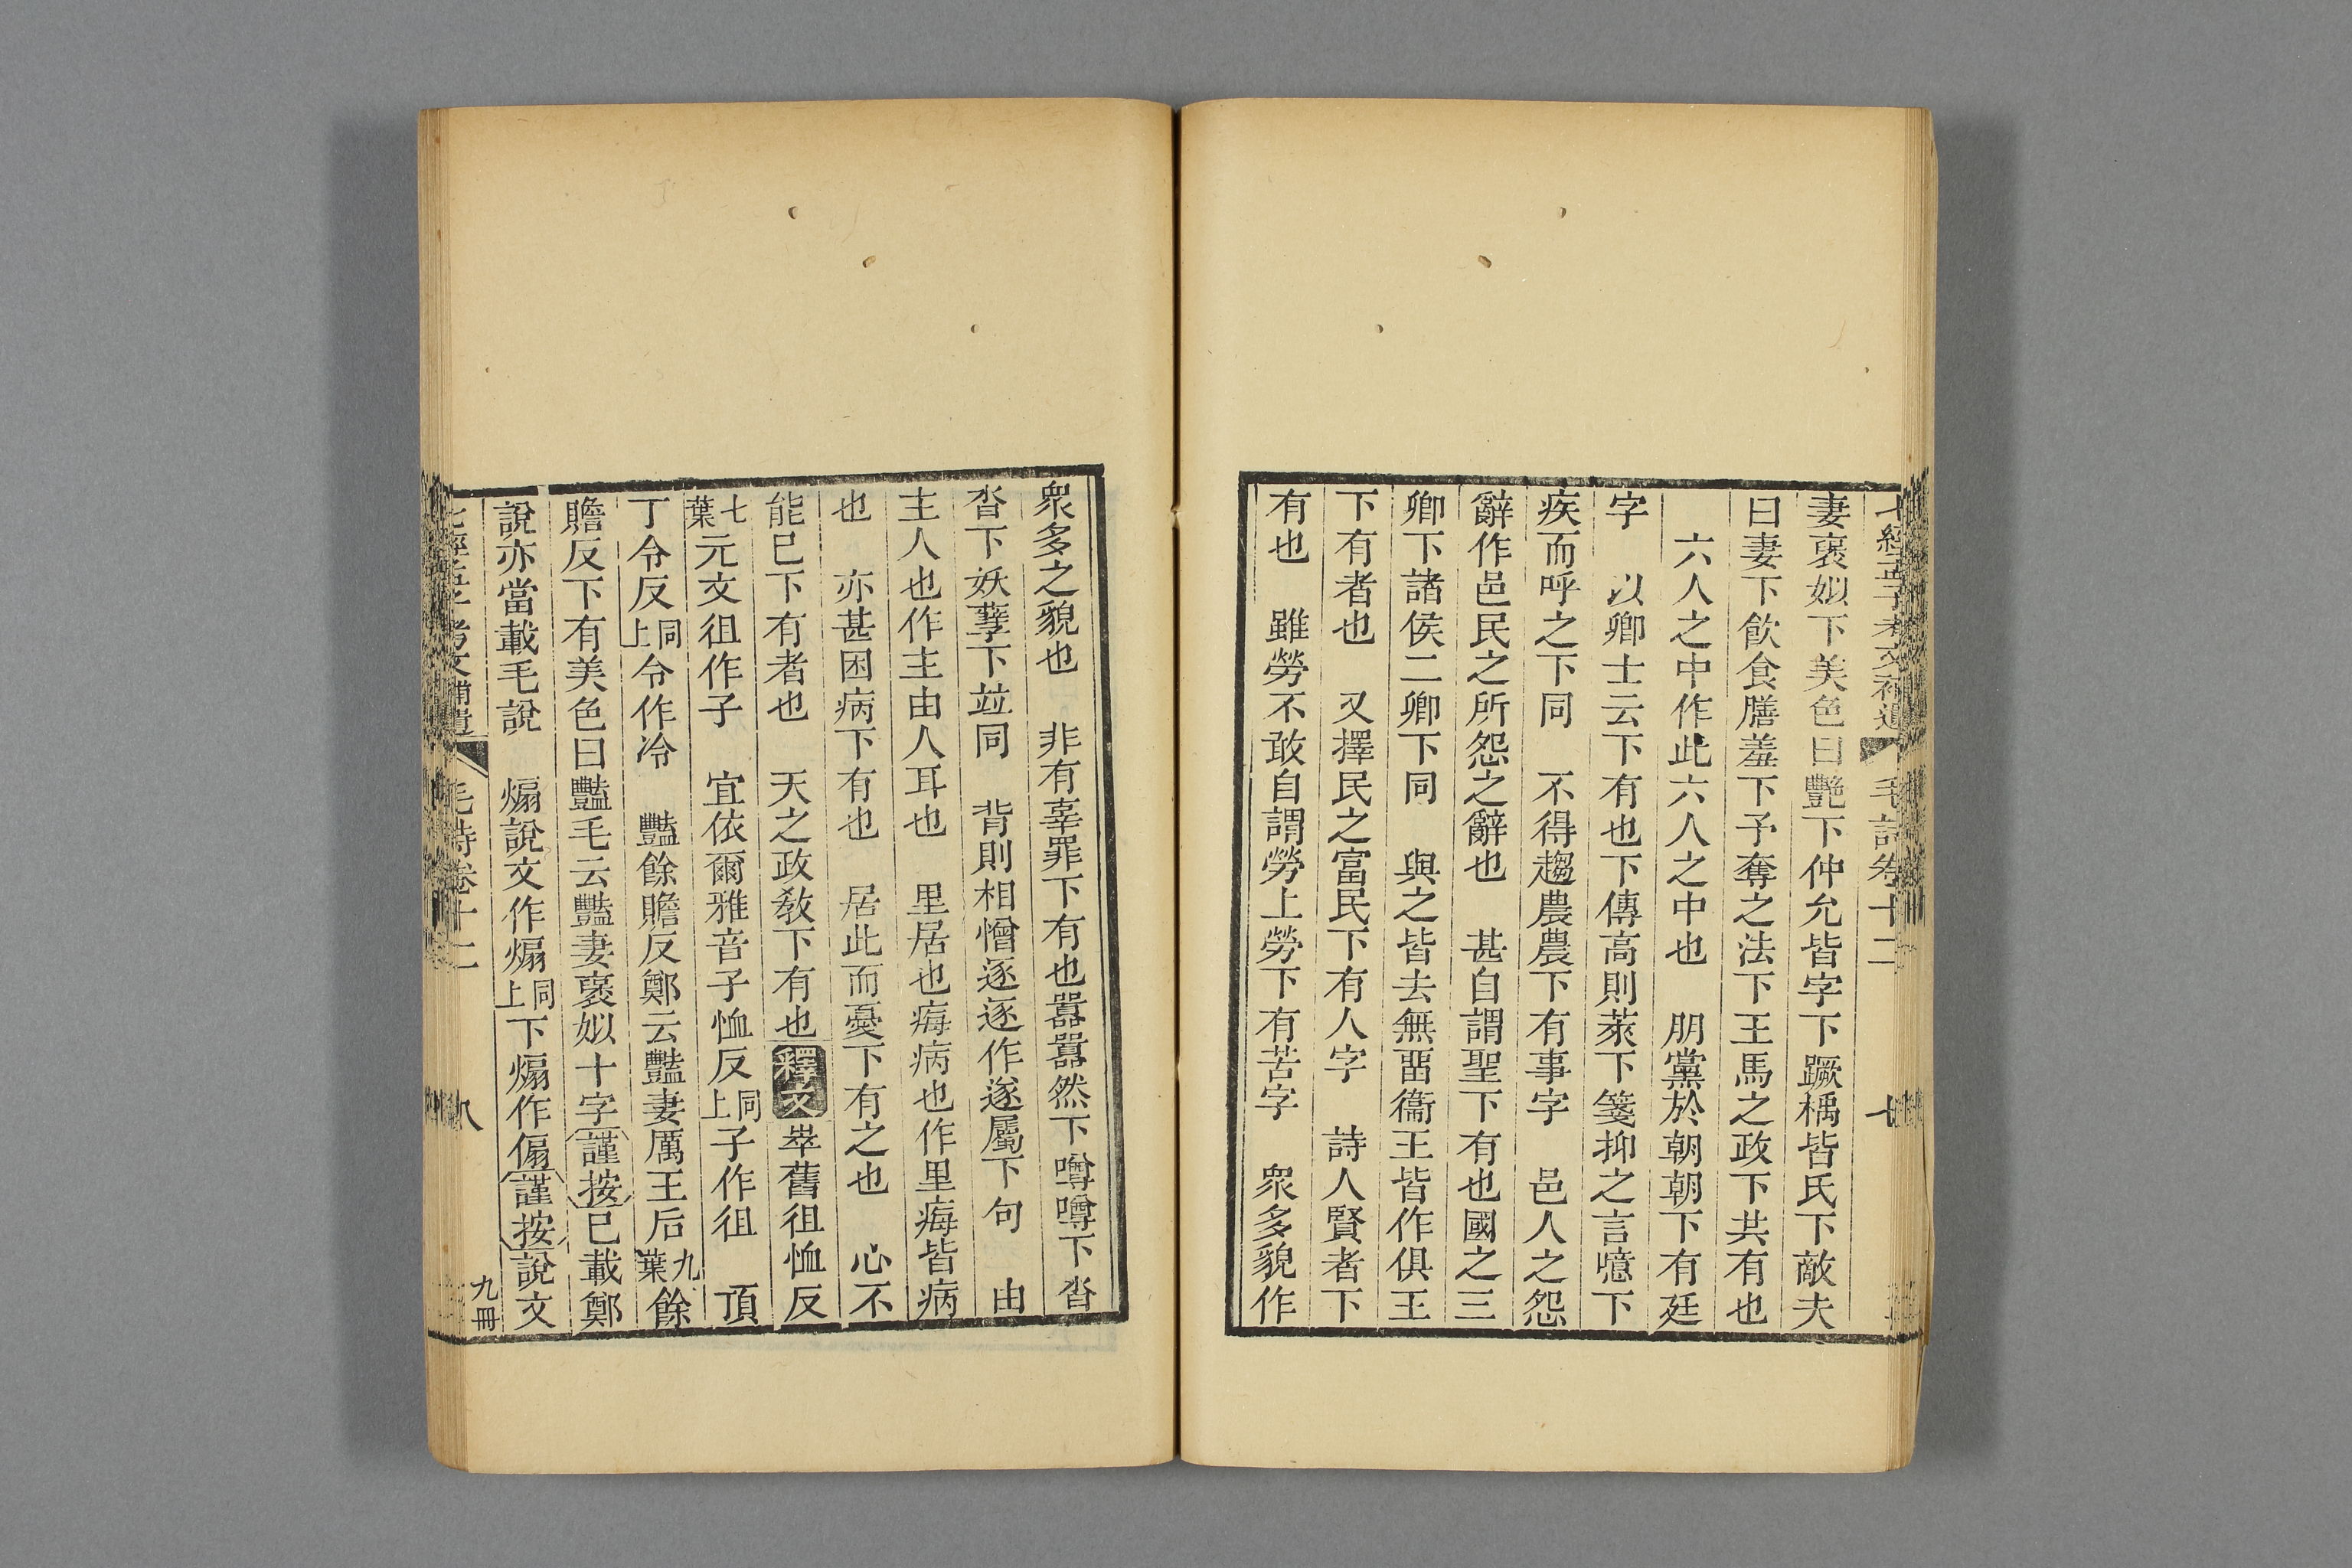 七經孟子考文補遺 毛詩卷十二 七
妻褒姒下美色曰艷下仲允皆字下蹶楀皆氏下敵夫
曰妻下飲食膳羞下予奪之法下王馬之政下共有也
六人之中作此六人之中也 朋黨於朝朝下有廷
字 以卿士云下有也下傳高則萊下箋抑之言噫下
疾而呼之下同 不得趨農農下有事字 邑人之怨
辭作邑民之所怨之辭也 甚自謂聖下有也國之三
卿下諸侯二卿下同 與之皆去無畱衞王皆作俱王
下有者也 又擇民之富民下有人字 詩人賢者下
有也 雖勞不敢自謂勞上勞下有苦字 衆多貌作
衆多之貌也 非有辜罪下有也嚻嚻然下噂噂下沓
沓下妖孼下竝同 背則相憎逐逐作遂屬下句 由
主人也作主由人耳也 里居也痗病也作里痗皆病
也 亦甚困病下有也 居此而憂下有之也 心不
能已下有者也 天之政教下有也釋文崒舊徂恤反
七葉元文徂作子 宜依爾雅音子恤反同上子作徂 頂
丁令反同上令作冷 豔餘贍反鄭云豔妻厲王后九葉餘
贍反下有美色曰豔毛云豔妻褒姒十字謹按已載鄭
說亦當載毛說 煽說文作煽同上下煽作傓謹按說文
七經孟子考文補遺 毛詩卷十二 八 九冊